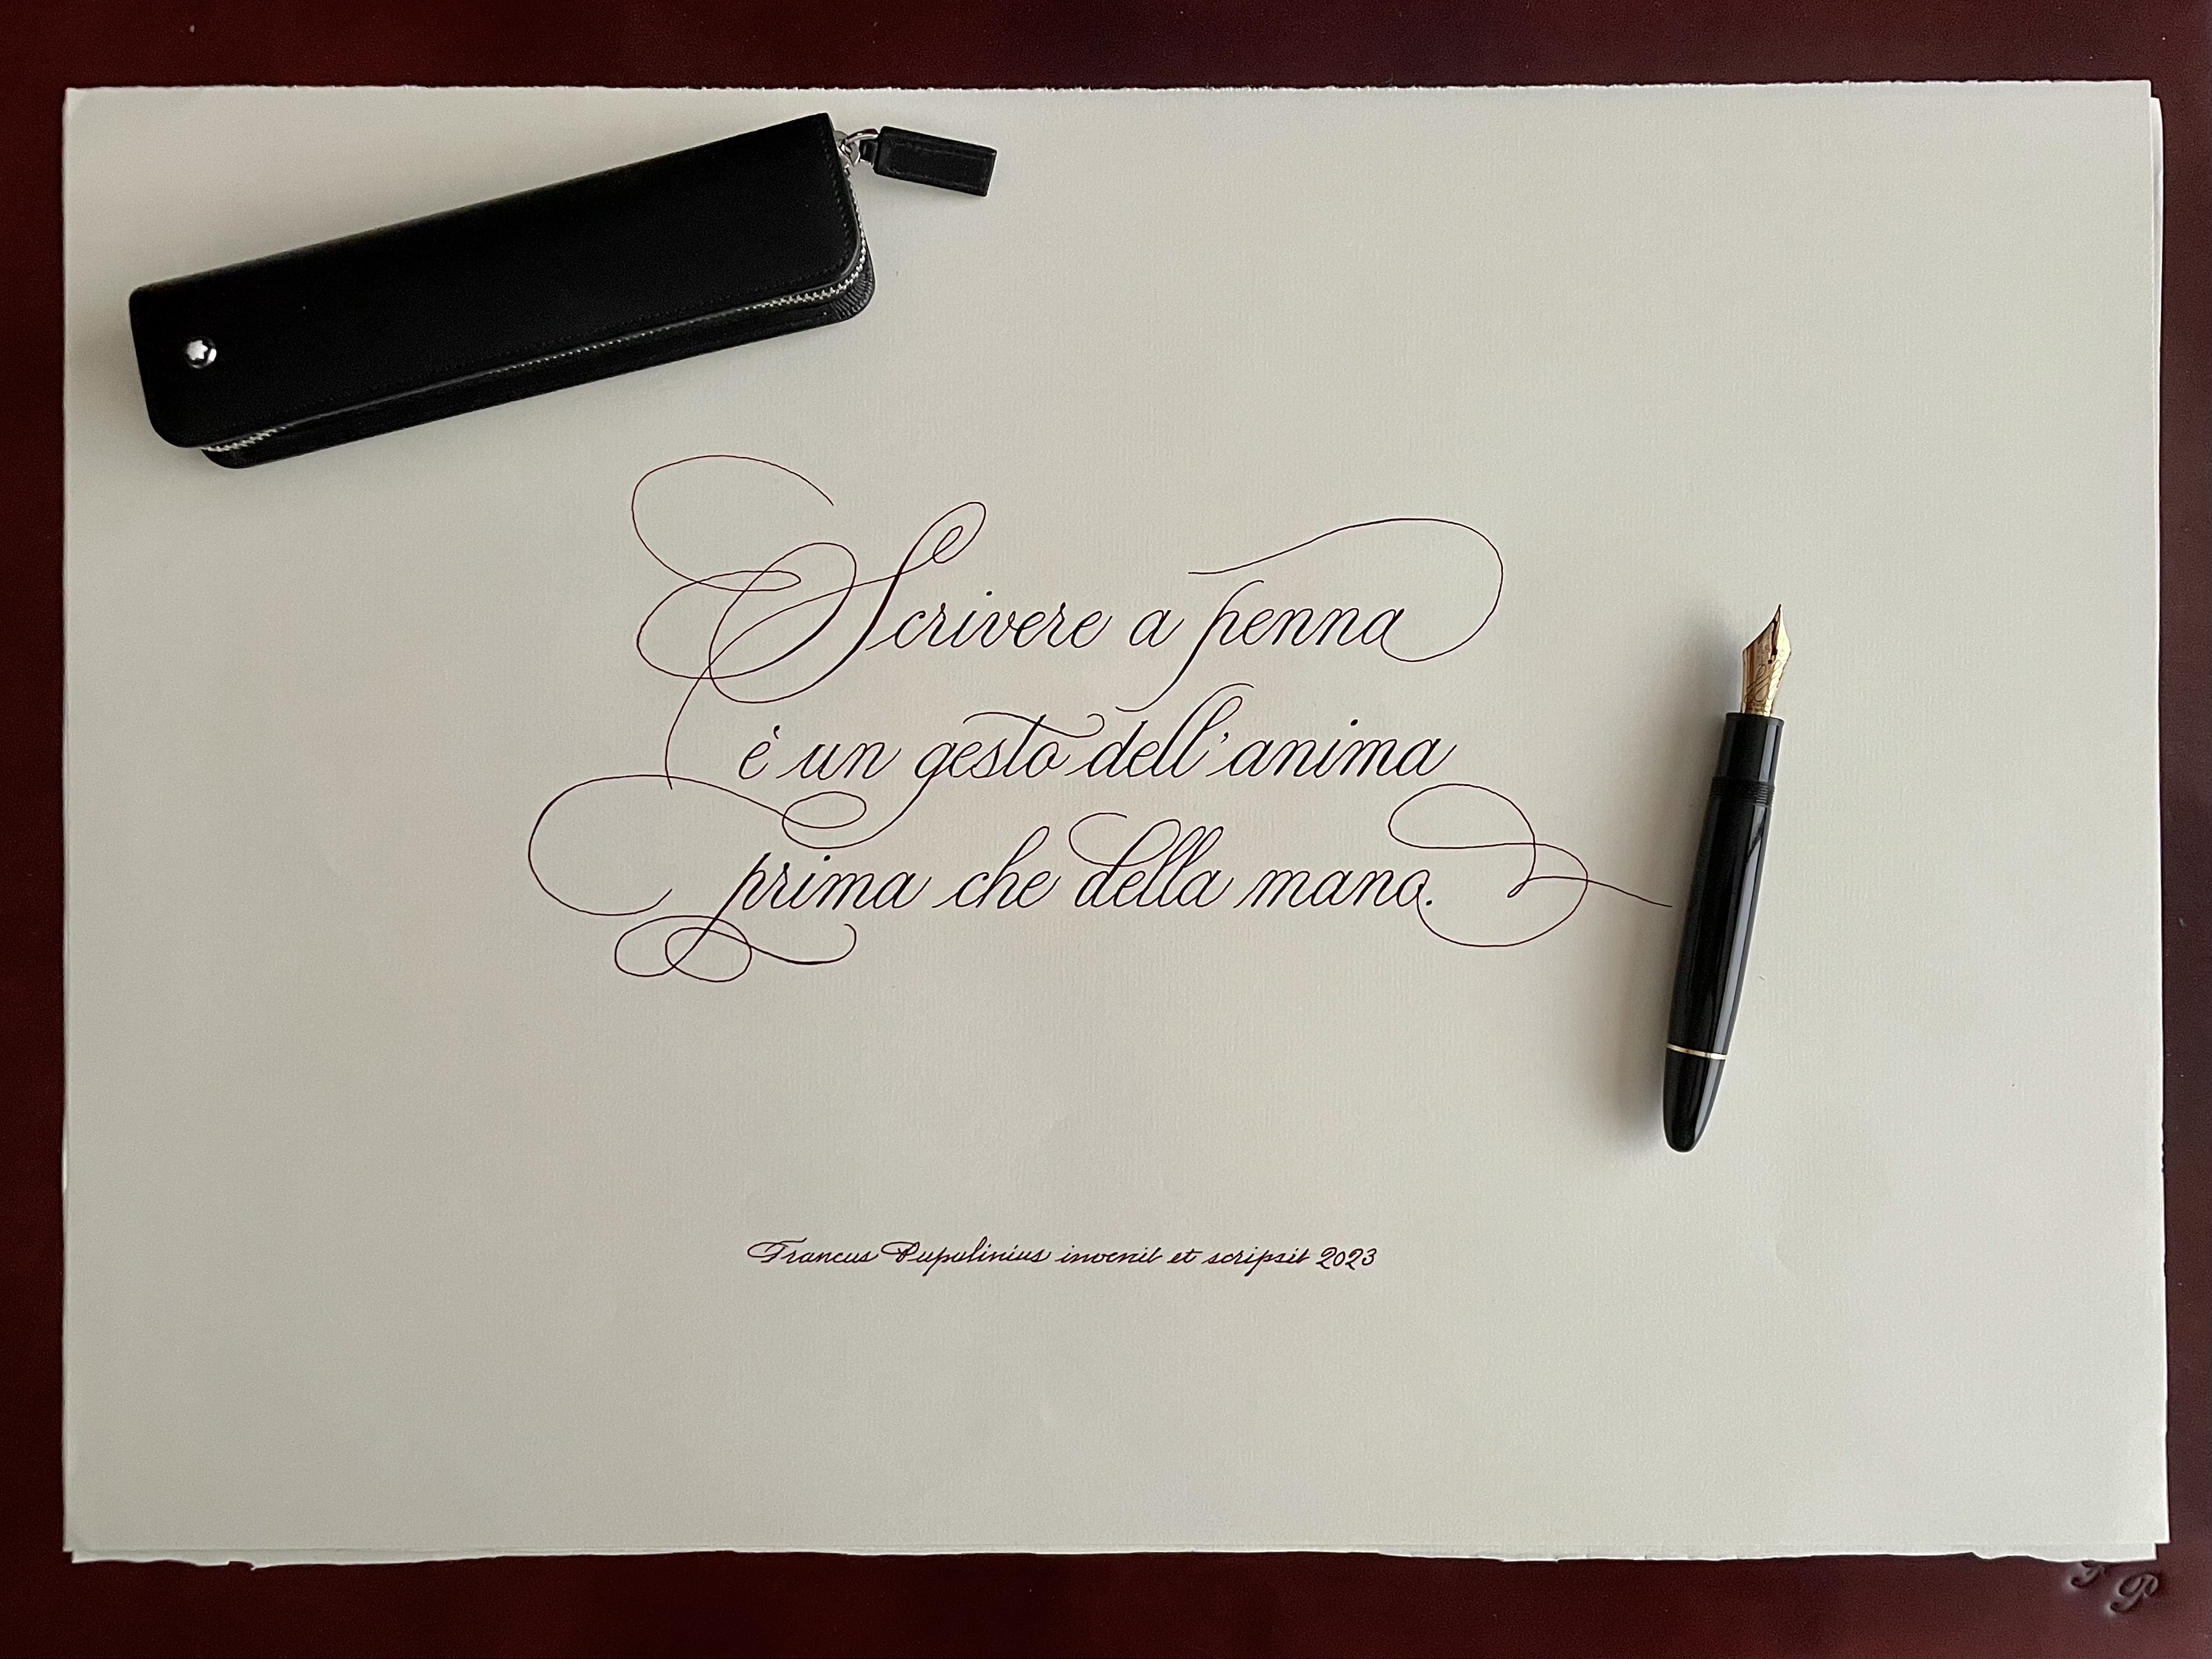 Scrivere a penna
è un gesto dell'anima
prima che della mano.
Francus Pupulinius invenit et scripsit 2023
F P